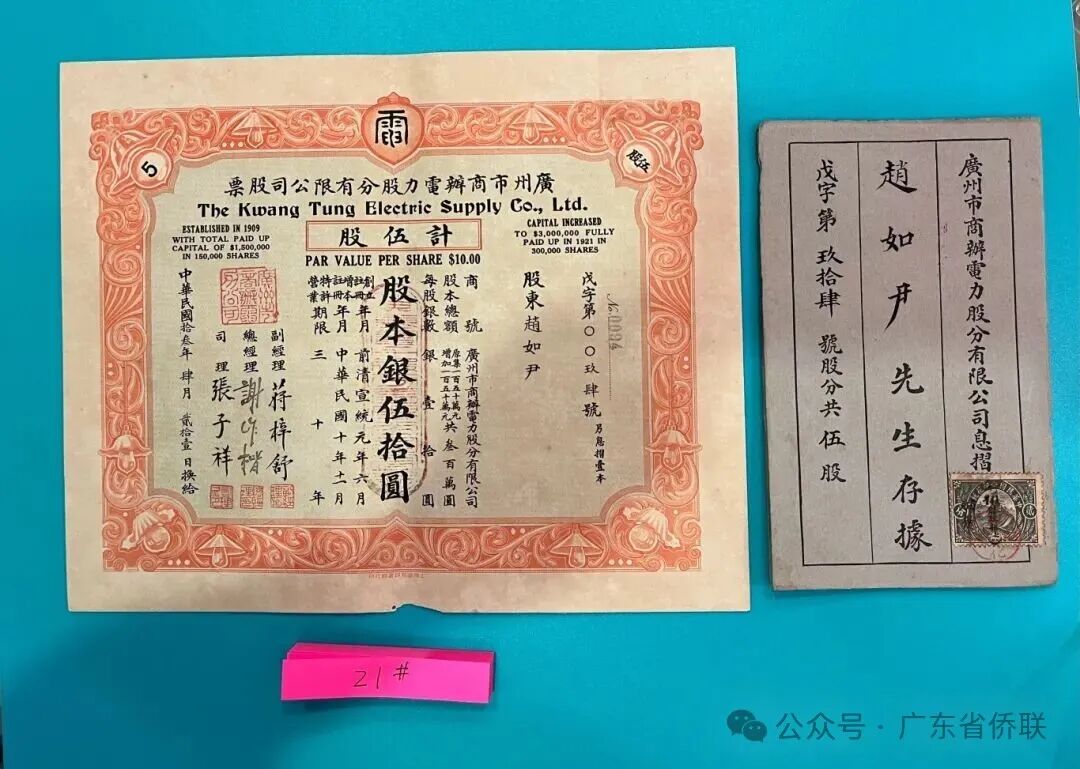 電
5
伍股
廣州市商辦電力股分有限公司股票
The Kwang Tung Electric Supply Co., Ltd.
ESTABLISHED IN 1909
WITH TOTAL PAID UP
CAPITAL OF $1,500,000
IN 150,000 SHARES
計伍股
PAR VALUE PER SHARE $10.00
CAPITAL INCREASED
TO $3,000,000 FULLY
PAID UP IN 1921 IN
300,000 SHARES
No. 0094
戊字第〇〇玖肆號 另息摺壹本
股東趙如尹
商號 廣州市商辦電力股分有限公司
股本總額 原集一百五十萬元 增加一百五十萬元 共叁百萬圓
每股銀數 銀壹拾圓
股本銀伍拾圓
創立註冊年月 前清宣統元年六月
增本註冊年月 中華民國十年十一月
特許營業期限 三十年
副經理 蔣梓舒
總經理 謝作楷
司理 張子祥
中華民國拾叁年肆月貳拾壹日換給
廣州市商辦電力股分有限公司息摺
趙如尹先生存據
戊字第玖拾肆號股分共伍股
貳分
21#
公众号·广东省侨联